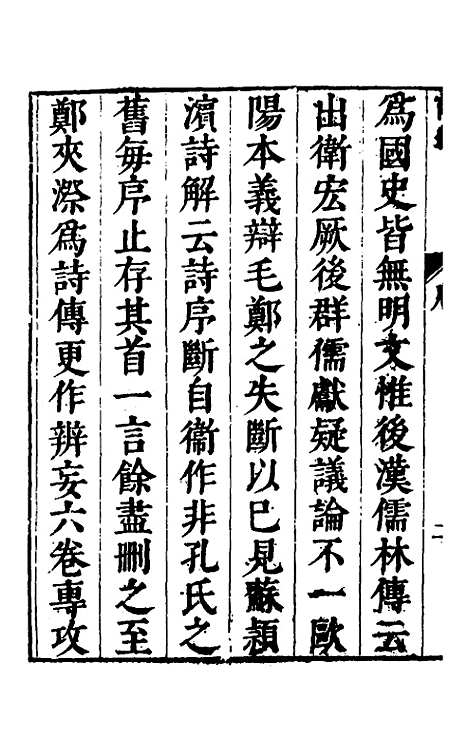 為國史皆無明文惟後漢儒林傳云
出衛宏厥後群儒獻疑議論不一歐
陽本義辯毛鄭之失斷以巳見蘇頴
濵詩解云詩序斷自衞作非孔氏之
舊每序止存其首一言餘盡刪之至
鄭夾漈為詩傳更作辨妄六卷專攻